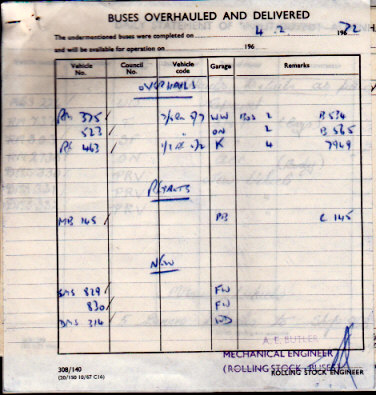 BUSES OVERHAULED AND DELIVERED
The undermentioned buses were completed on 4.2 196 72
and will be available for operation on 196
Vehicle No. Council No. Vehicle code Garage Remarks
OVERHAULS
RM 375 WW Bos 2 B534
523 ON 2 B565
RF 463 K 4 7969
MB 145 PB C 145
NEW
SMS 829 FW
830 FW
DMS 314 WD
A. C. BUTLER
MECHANICAL ENGINEER
(ROLLING STOCK BUSES)
ROLLING STOCK ENGINEER
308/140
(20/150 10/67 C16)